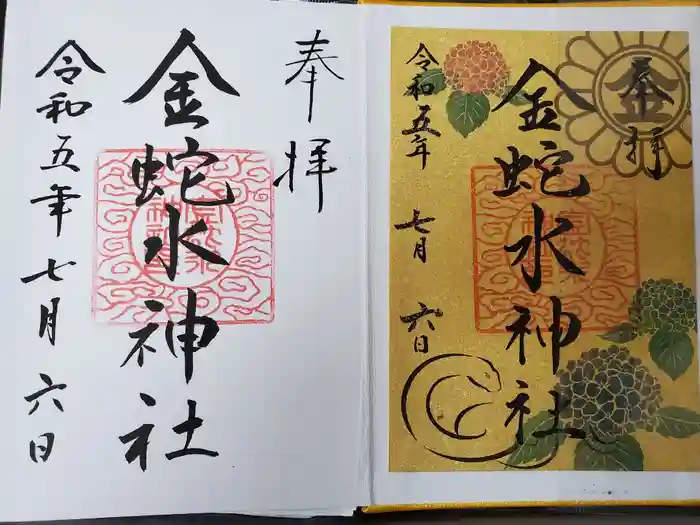 奉拝
金蛇水神社
令和五年七月六日
奉拝
金
金蛇水神社
令和五年
七月
六日